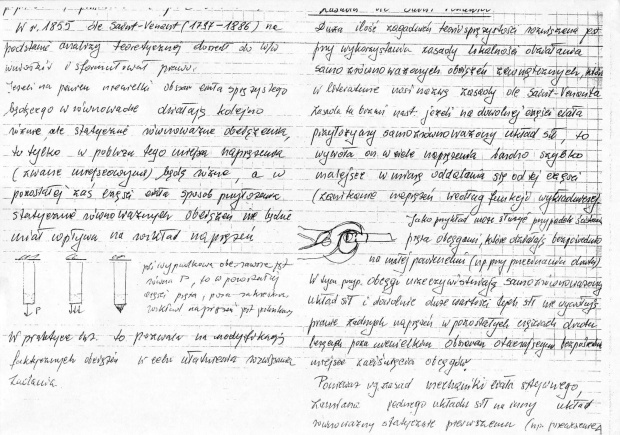 W r. 1855 de Saint-Venant (1797-1886) na
podstawie analizy teoretycznej doszedł do w/w
wniosków i sformułował prawo:
Jeżeli na pewien niewielki obszar ciała sprężystego
będącego w równowadze działają kolejno
różne ale statycznie równoważne obciążenia,
to tylko w pobliżu tego miejsca naprężenia
(zwane miejscowymi) będą różne, a w
pozostałej zaś części ciała sposób przyłożenia
statycznie równoważnych obciążeń nie będzie
miał wpływu na rozkład naprężeń
jeśli wypadkowa obciążenia jest
równa P, to w pozostałej
części pręta, poza
rozkład naprężeń jest
P
W praktyce tzw. to pozwala na modyfikację
faktycznych obciążeń w celu ułatwienia rozwiązania
zadania.
Zasada de Saint Venanta
Duża ilość zagadnień teorii sprężystości rozwiązana jest
przy wykorzystaniu zasady lokalności działania
samozrównoważonych obciążeń zewnętrznych, która
w literaturze nosi nazwę zasady de Saint-Venanta
Zasada ta brzmi nast. jeżeli na dowolnej części ciała
przyłożymy samozrównoważony układ sił, to
wywoła on w ciele naprężenia bardzo szybko
malejące w miarę oddalania się od tej części
(zanikanie naprężeń według funkcji wykładniczej)
Jako przykład może służyć przypadek ściskania
pręta obcęgami, które działają bezpośrednio
na małej powierzchni (np przy przecinaniu drutu)
W tym przyp. obcęgi urzeczywistniają samozrównoważony
układ sił i dowolnie duże wartości tych sił nie wywołują
prawie żadnych naprężeń w pozostałych częściach drutu
będących poza niewielkim obszarem otaczającym bezpośrednio
miejsce zaciśnięcia obcęgów.
Ponieważ wg zasad mechaniki ciała sztywnego,
zamiana jednego układu sił na inny układ
równoważny statycznie pierwszemu (np. przeniesienie